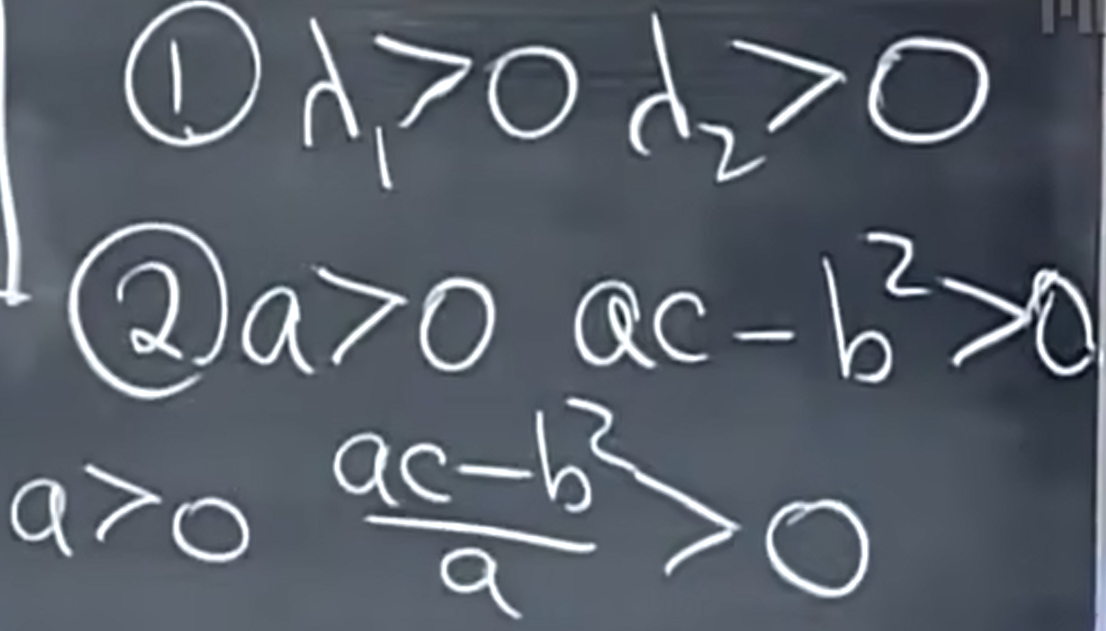 ① λ₁>0 λ₂>0
② a>0 ac-b²>0
a>0 (ac-b²)/a >0